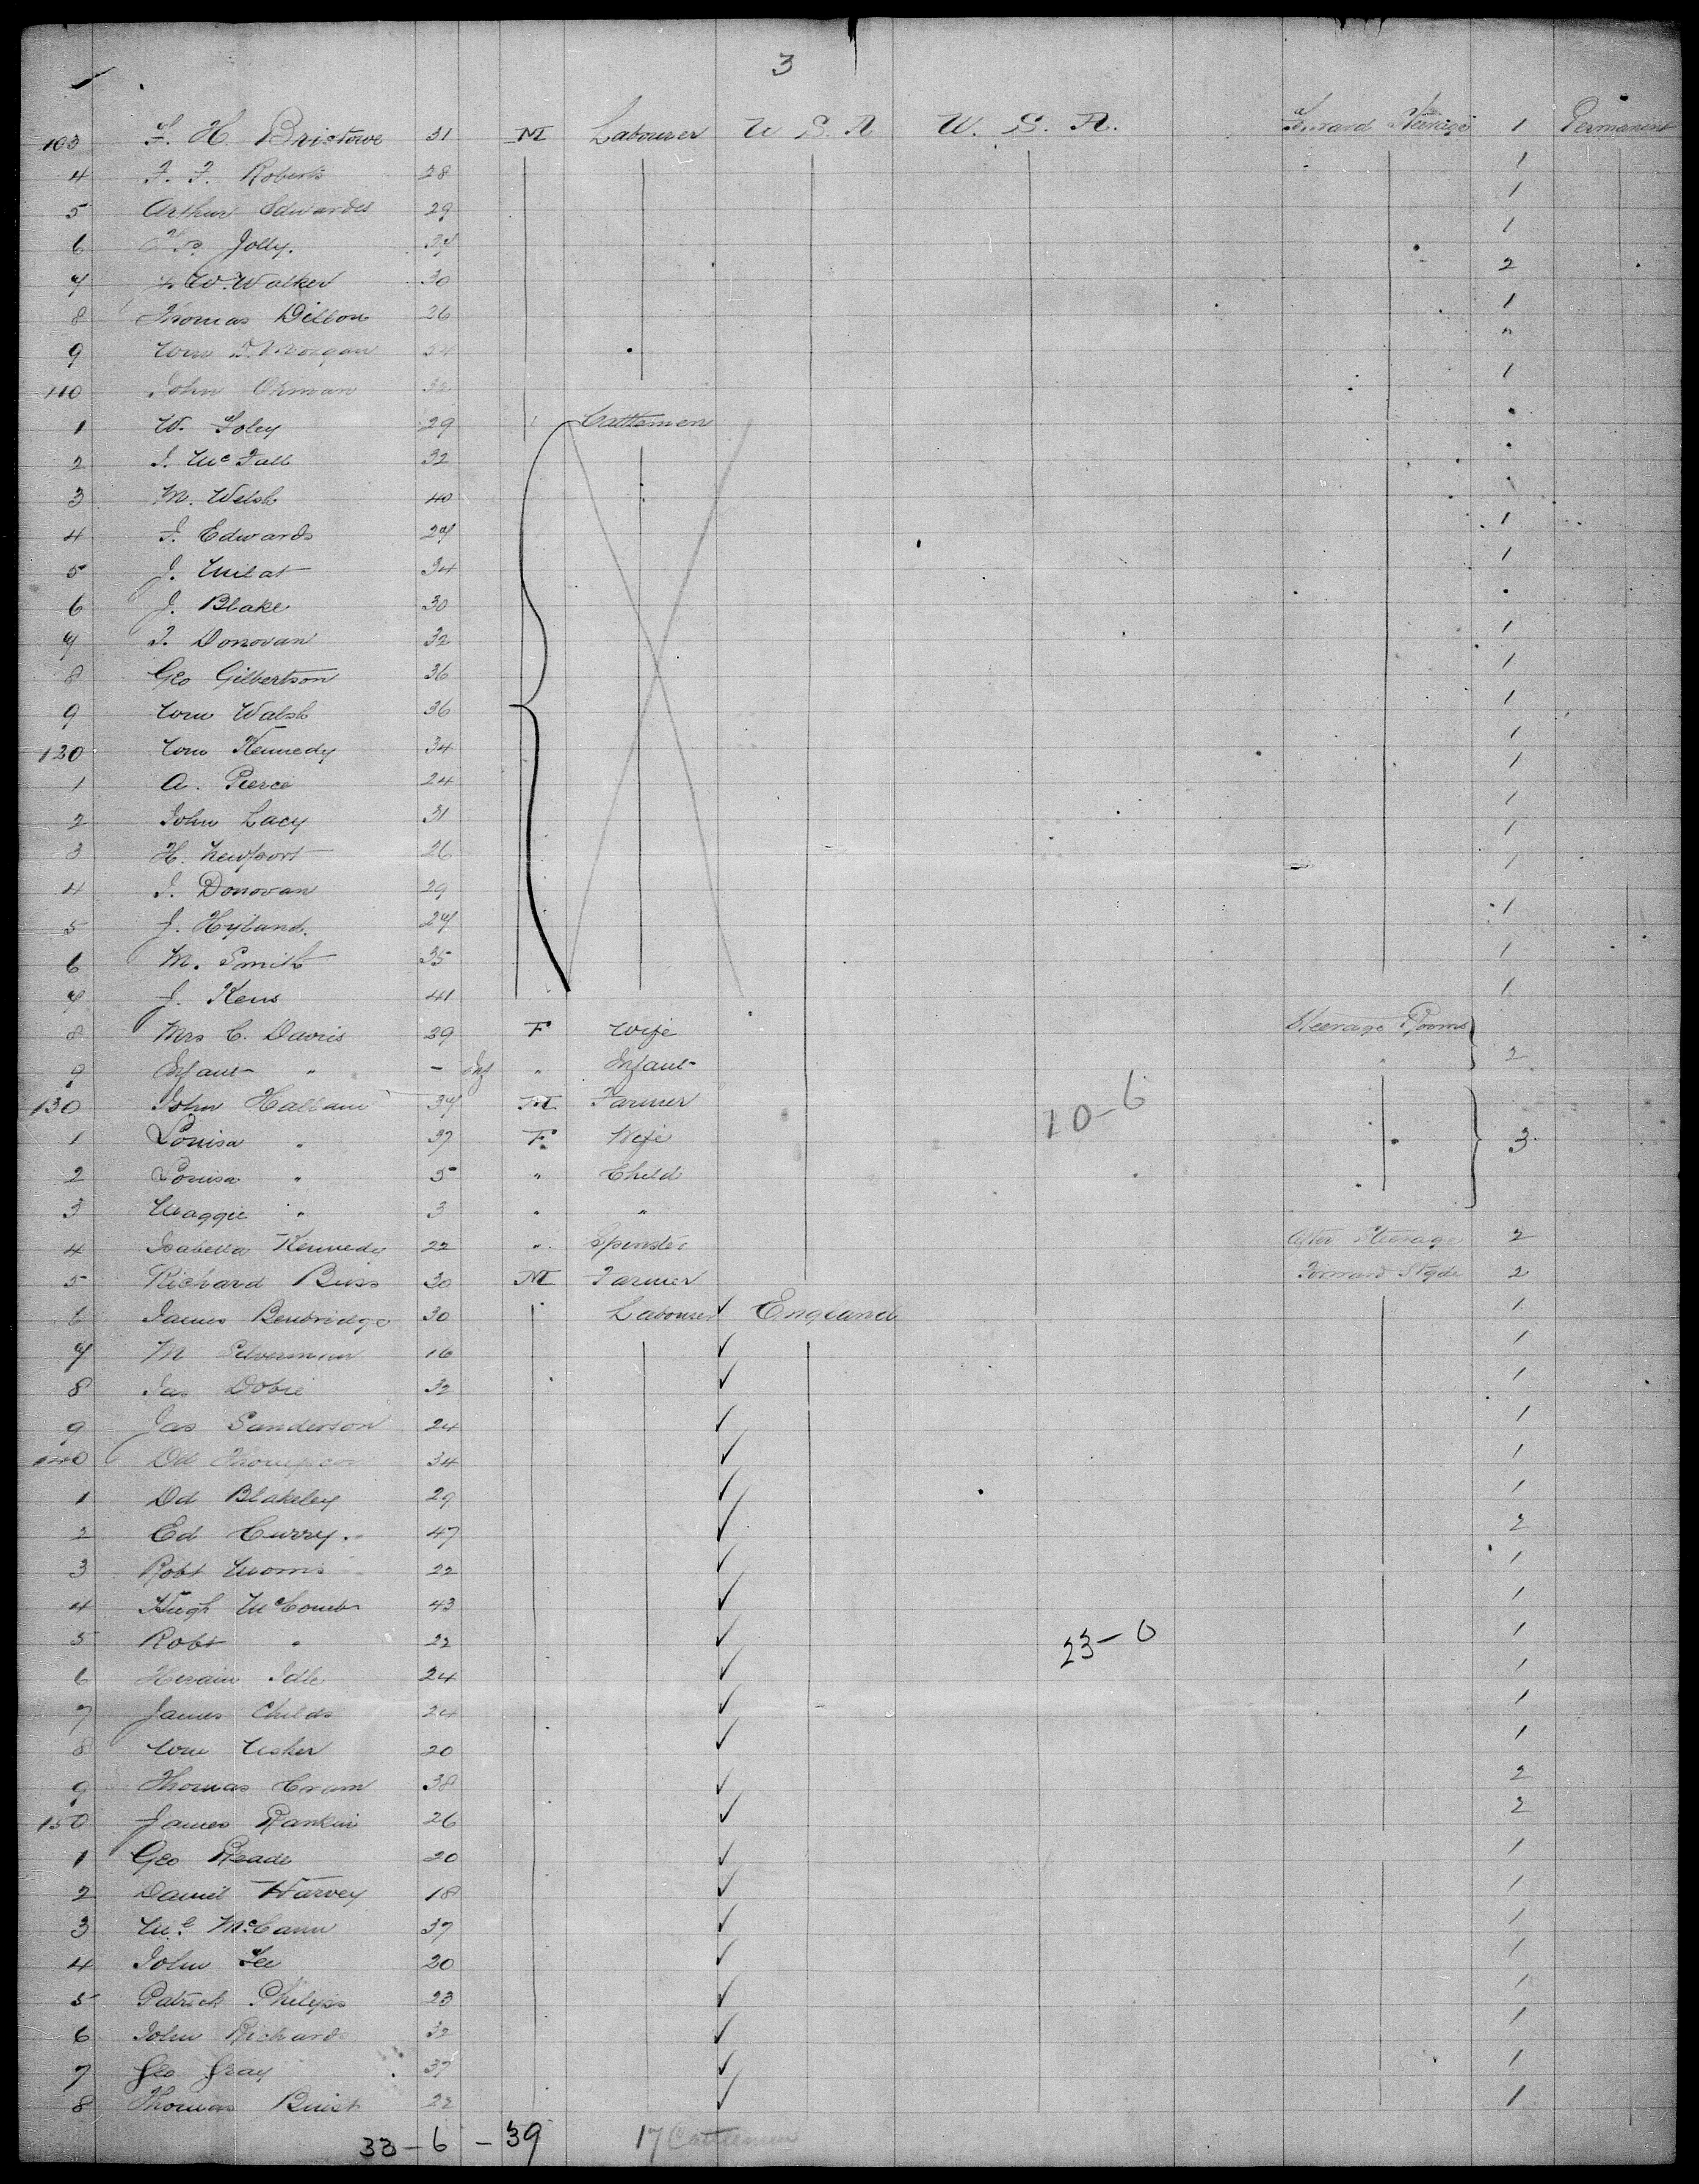 3
103 F. H. Bristowe 31 M Labourer U S. A U. S. A. Forward Steerage 1 Permanent
4 F. F. Roberts 28 1
5 Arthur Edwardes 29 1
6 Jolly. 1
7 W. Walker 30 2
8 Thomas Dillon 26 1
9 Wm Morgan 54 "
110 John Ohman 32 1
1 W. Foley 29 Cattlemen
2 J. McFall 32
3 M. Welsh 40
4 F. Edwards 27 1
5 J. Milat 34 1
6 J. Blake 30
7 J. Donovan 32 1
8 Geo Gilbertson 36 1
9 Wm Walsh 36 1
120 Wm Kennedy 34 1
1 A. Pierce 24 1
2 John Lacy 31 1
3 H. Newport 26 1
4 J. Donovan 29 1
5 J. Hyland. 27 1
6 M. Smith 35 1
7 J. Kens 41 1
8 Mrs C. Davies 29 F Wife Steerage Rooms
9 Infant " - Inf " Infant " 2
130 John Hallam 37 M Farmer 10-6
1 Louisa " 37 F Wife " 3
2 Louisa " 5 " Child
3 Maggie " 3 " "
4 Isabella Kennedy 22 " Spinster After Steerage 2
5 Richard Buss 30 M Farmer Forward Stgde 2
6 James Benbridge 30 " Labourer ✓ England 1
7 M Silverman 16 ✓ 1
8 Jas Dobie 32 ✓ 1
9 Jas Sanderson 24 ✓ 1
140 Dd Thompson 34 ✓ 1
1 Dd Blakeley 29 ✓ 1
2 Ed Curry. 47 ✓ 2
3 Robt Morris 22 ✓ 1
4 Hugh McComb 43 ✓ 1
5 Robt " 22 ✓ 23-0 1
6 Herain Idle 24 ✓ 1
7 James Childs 24 ✓ 1
8 Wm Usher 20 ✓ 1
9 Thomas Cram 38 ✓ 2
150 James Rankin 26 ✓ 2
1 Geo Reade 20 ✓ 1
2 Daniel Harvey 18 ✓ 1
3 McCann 37 ✓ 1
4 John Lee 20 ✓ 1
5 Patrick Philips 23 ✓ 1
6 John Richards 32 ✓ 1
7 Geo Gray 37 ✓ 1
8 Thomas Buist 22 ✓ 1
33-6-39 17 Cattlemen